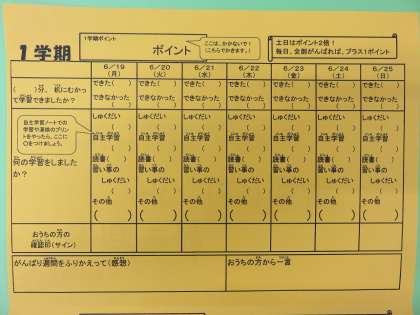 1学期
1学期ポイント
ポイント
ここは、かかないで!
(こちらでかきます。)
土日はポイント2倍!
毎日、全部がんばれば、プラス1ポイント
6/19 6/20 6/21 6/22 6/23 6/24 6/25
(月) (火) (水) (木) (金) (土) (日)
( )分、机にむかっ
て学習できましたか?
できた( ) できた( ) できた( ) できた( ) できた( ) できた( ) できた( )
できなかった できなかった できなかった できなかった できなかった できなかった できなかった
( ) ( ) ( ) ( ) ( ) ( ) ( )
自主学習ノートでの
学習や漢検のプリン
トをやったら、ここに
○をつけましょう。
何の学習をしました
か?
しゅくだい しゅくだい しゅくだい しゅくだい しゅくだい しゅくだい しゅくだい
( ) ( ) ( ) ( ) ( ) ( ) ( )
自主学習 自主学習 自主学習 自主学習 自主学習 自主学習 自主学習
( ) ( ) ( ) ( ) ( ) ( ) ( )
読書( ) 読書( ) 読書( ) 読書( ) 読書( ) 読書( ) 読書( )
習い事の 習い事の 習い事の 習い事の 習い事の 習い事の 習い事の
しゅくだい しゅくだい しゅくだい しゅくだい しゅくだい しゅくだい しゅくだい
( ) ( ) ( ) ( ) ( ) ( ) ( )
その他 その他 その他 その他 その他 その他 その他
( ) ( ) ( ) ( ) ( ) ( ) ( )
おうちの方の
確認印(サイン)
がんばり週間をふりかえって(感想)
おうちの方から一言